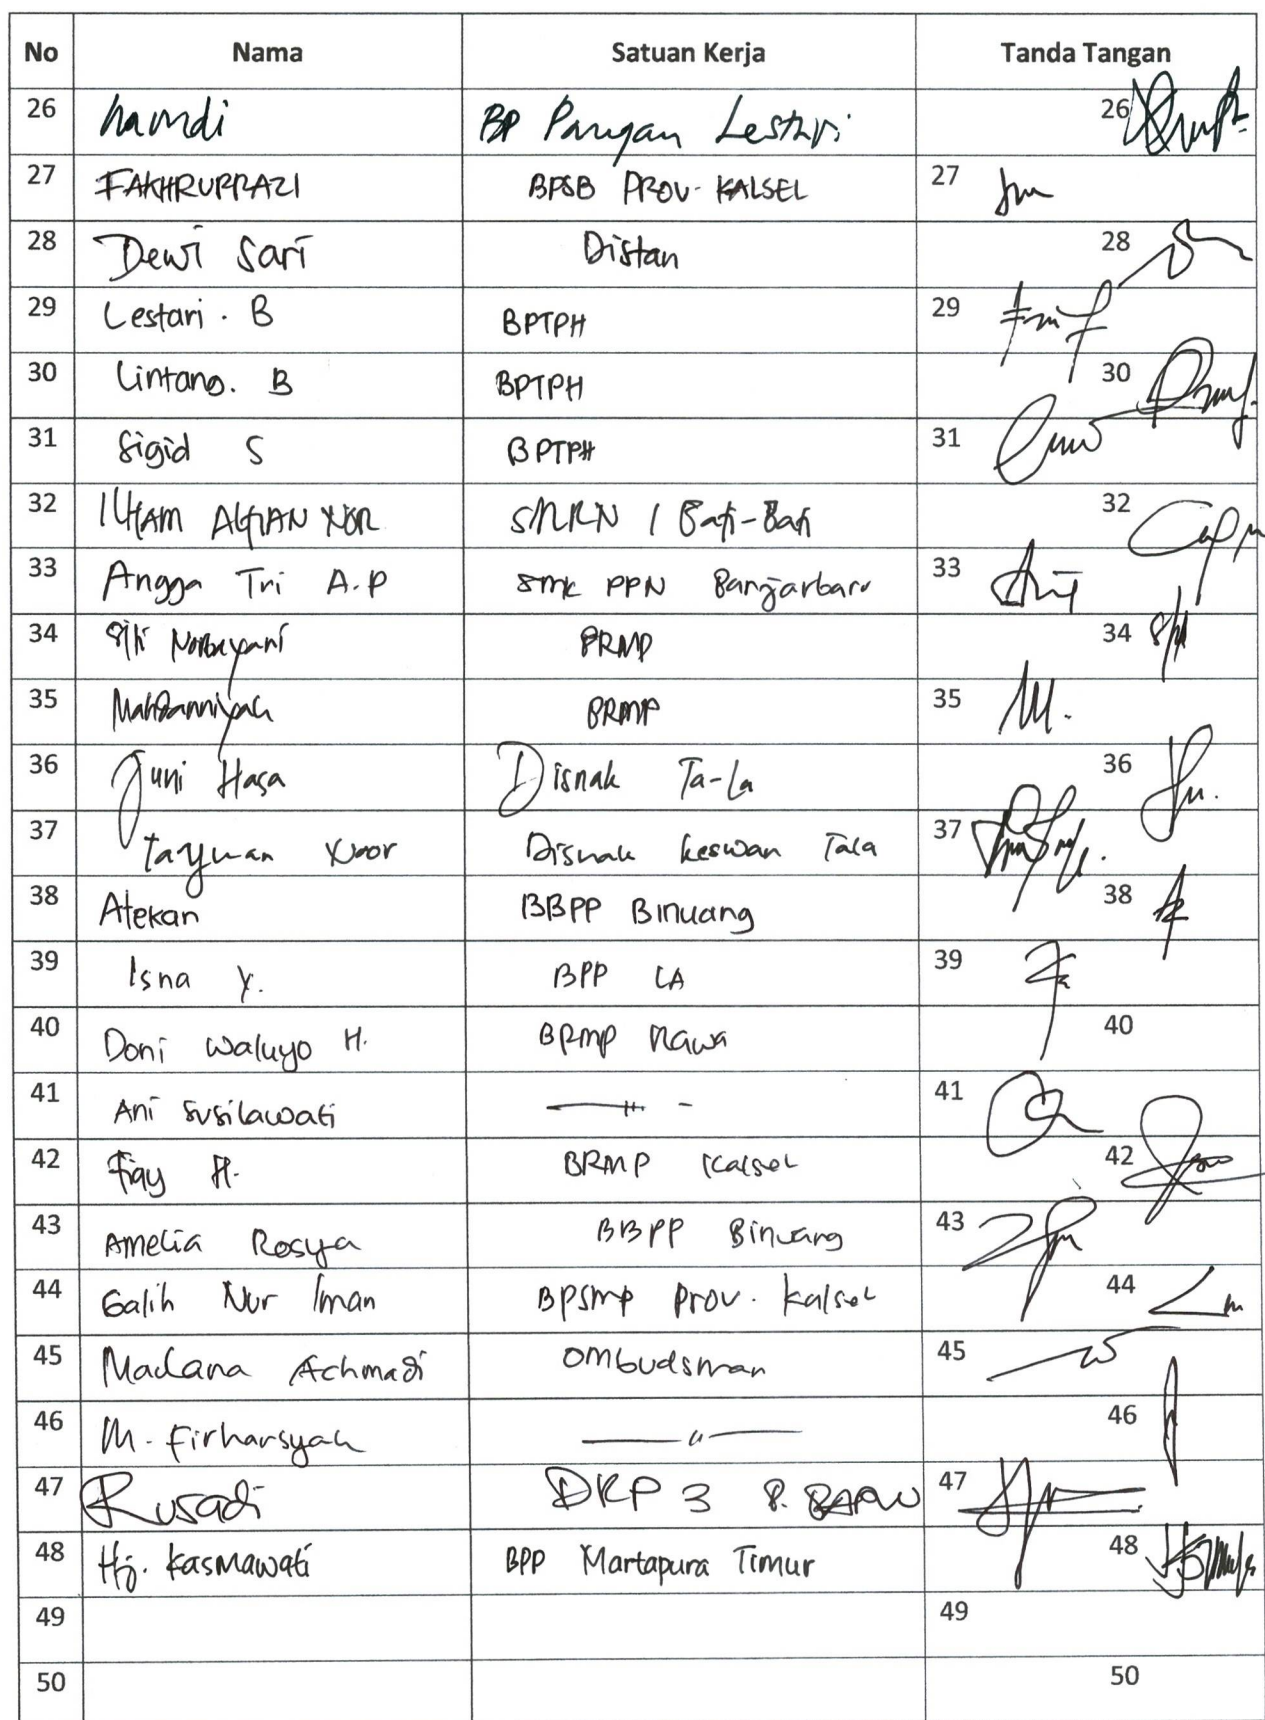 No Nama Satuan Kerja Tanda Tangan
26 hamdi BP Pangan Lestari 26
27 FAKHRURRAZI BPSB PROV. KALSEL 27
28 Dewi Sari Distan 28
29 Lestari . B BPTPH 29
30 Lintang. B BPTPH 30
31 Sigid S BPTPH 31
32 ILHAM ALFIAN NOR SMKN 1 Bati-Bati 32
33 Angga Tri A.P SMK PPN Banjarbaru 33
34 Siti Norbayani BRMP 34
35 BRMP 35
36 Juni Hasa Disnak Ta-La 36
37 Tayuman Noor Disnak keswan Tala 37
38 Atekan BBPP Binuang 38
39 Isna Y. BPP LA 39
40 Doni Waluyo H. BRMP Rawa 40
41 Ani Susilawati —〃— - 41
42 H. BRMP Kalsel 42
43 Amelia Rosya BBPP Binuang 43
44 Galih Nur Iman BPSMP Prov. Kalsel 44
45 Maulana Achmadi Ombudsman 45
46 M. Firharsyah —〃— 46
47 Rusadi DKP 3 B. BARU 47
48 Hj. Kasmawati BPP Martapura Timur 48
49 49
50 50